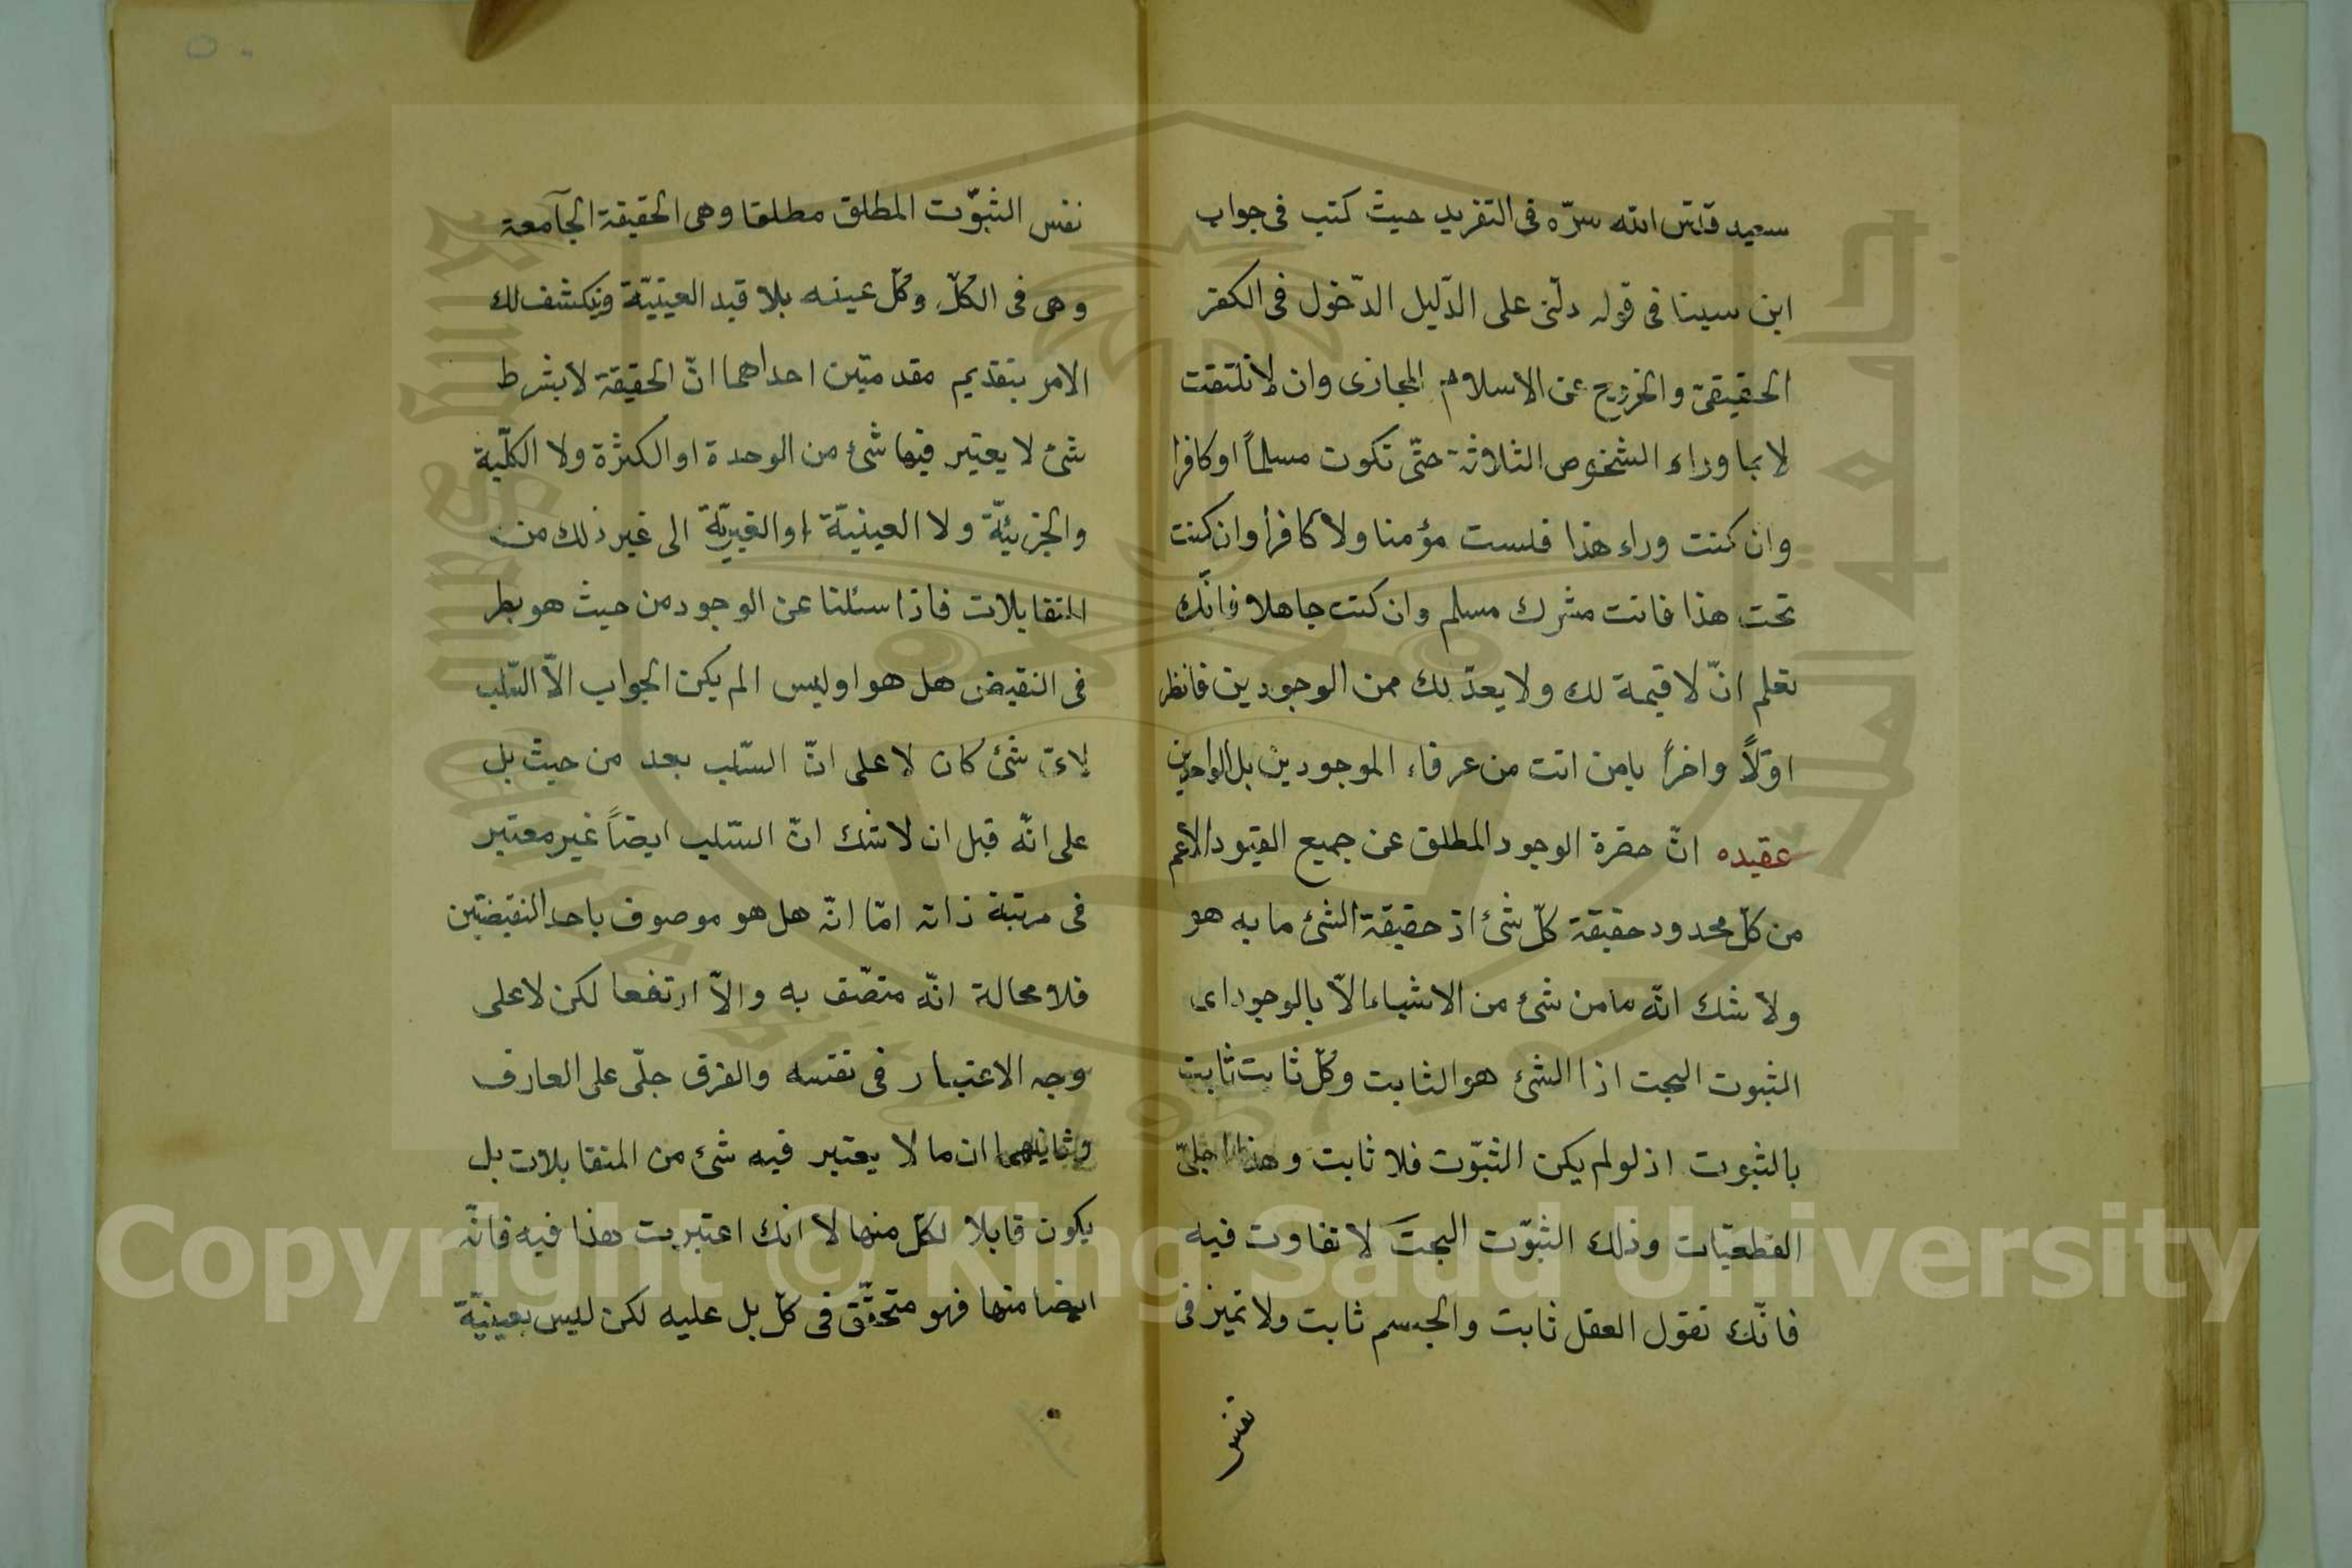 سعيد قدّس الله سرّه فى التفريد حيث كتب فى جواب
ابن سينا فى قوله دلّنى على الدّليل الدّخول فى الكفر
الحقيقىّ والخروج عن الاسلام المجازى وان لا تلتفت
لا بما وراء الشخوص الثلاثة حتّى تكون مسلماً او كافرا
وان كنت وراء هذا فلست مؤمنا ولا كافرا وان كنت
تحت هذا فانت مشرك مسلم وان كنت جاهلا فانّك
تعلم انّ لا قيمة لك ولا يعدّ بك من الوجودين فانظر
اوّلاً واخراً يامن انت من عرفاء الموجودين بل الواجدين
عقيده انّ حضرة الوجود المطلق عن جميع القيود الاعم
من كلّ محدود حقيقة كلّ شئ اذ حقيقة الشئ ما به هو
ولا شك انّه ما من شئ من الاشياء الاّ بالوجود اى
الثبوت البحت اذا الشئ هو الثابت وكلّ ثابت ثابت
بالثبوت اذ لو لم يكن الثبّوت فلا ثابت وهذا اجلىّ
القطعيّات وذلك الثبّوت البحت لا تفاوت فيه
فانّك تقول العقل ثابت والجسم ثابت ولا تميز فى
نفس
٥٠
نفس الثبوّت المطلق مطلقا وهى الحقيقة الجآمعة
وهى فى الكلّ وكلّ عينه بلا قيد العينيّة وينكشف لك
الامر بتقديم مقدمتين احداهما انّ الحقيقة لا بشرط
شئ لا يعتبر فيها شئ من الوحدة او الكثرة ولا الكلّية
والجزئيّة ولا العينيّة او الغيريّة الى غير ذلك من
المتقابلات فاذا سئلنا عن الوجود من حيث هو بطر
فى النقيض هل هو اوليس الم يكن الجواب الاّ السّلب
لاىّ شئ كان لا على انّ السّلب بعد من حيث بل
على انّه قبل ان لا شك انّ السّلب ايضاً غير معتبر
فى مرتبة ذاته امّا انّه هل هو موصوف باحد النقيضين
فلا محالة انّه متصّف به والاّ ارتفعا لكن لا على
وجه الاعتبار فى نفسه والفرق جلّى على العارف
وثانيهما ان ما لا يعتبر فيه شئ من المتقابلات بل
يكون قابلا لكلّ منها لا انك اعتبرت هذا فيه فانّه
ايضا منها فهو متحقّق فى كلّ بل عليه لكن ليس بعينيّة
Copyright © King Saud University